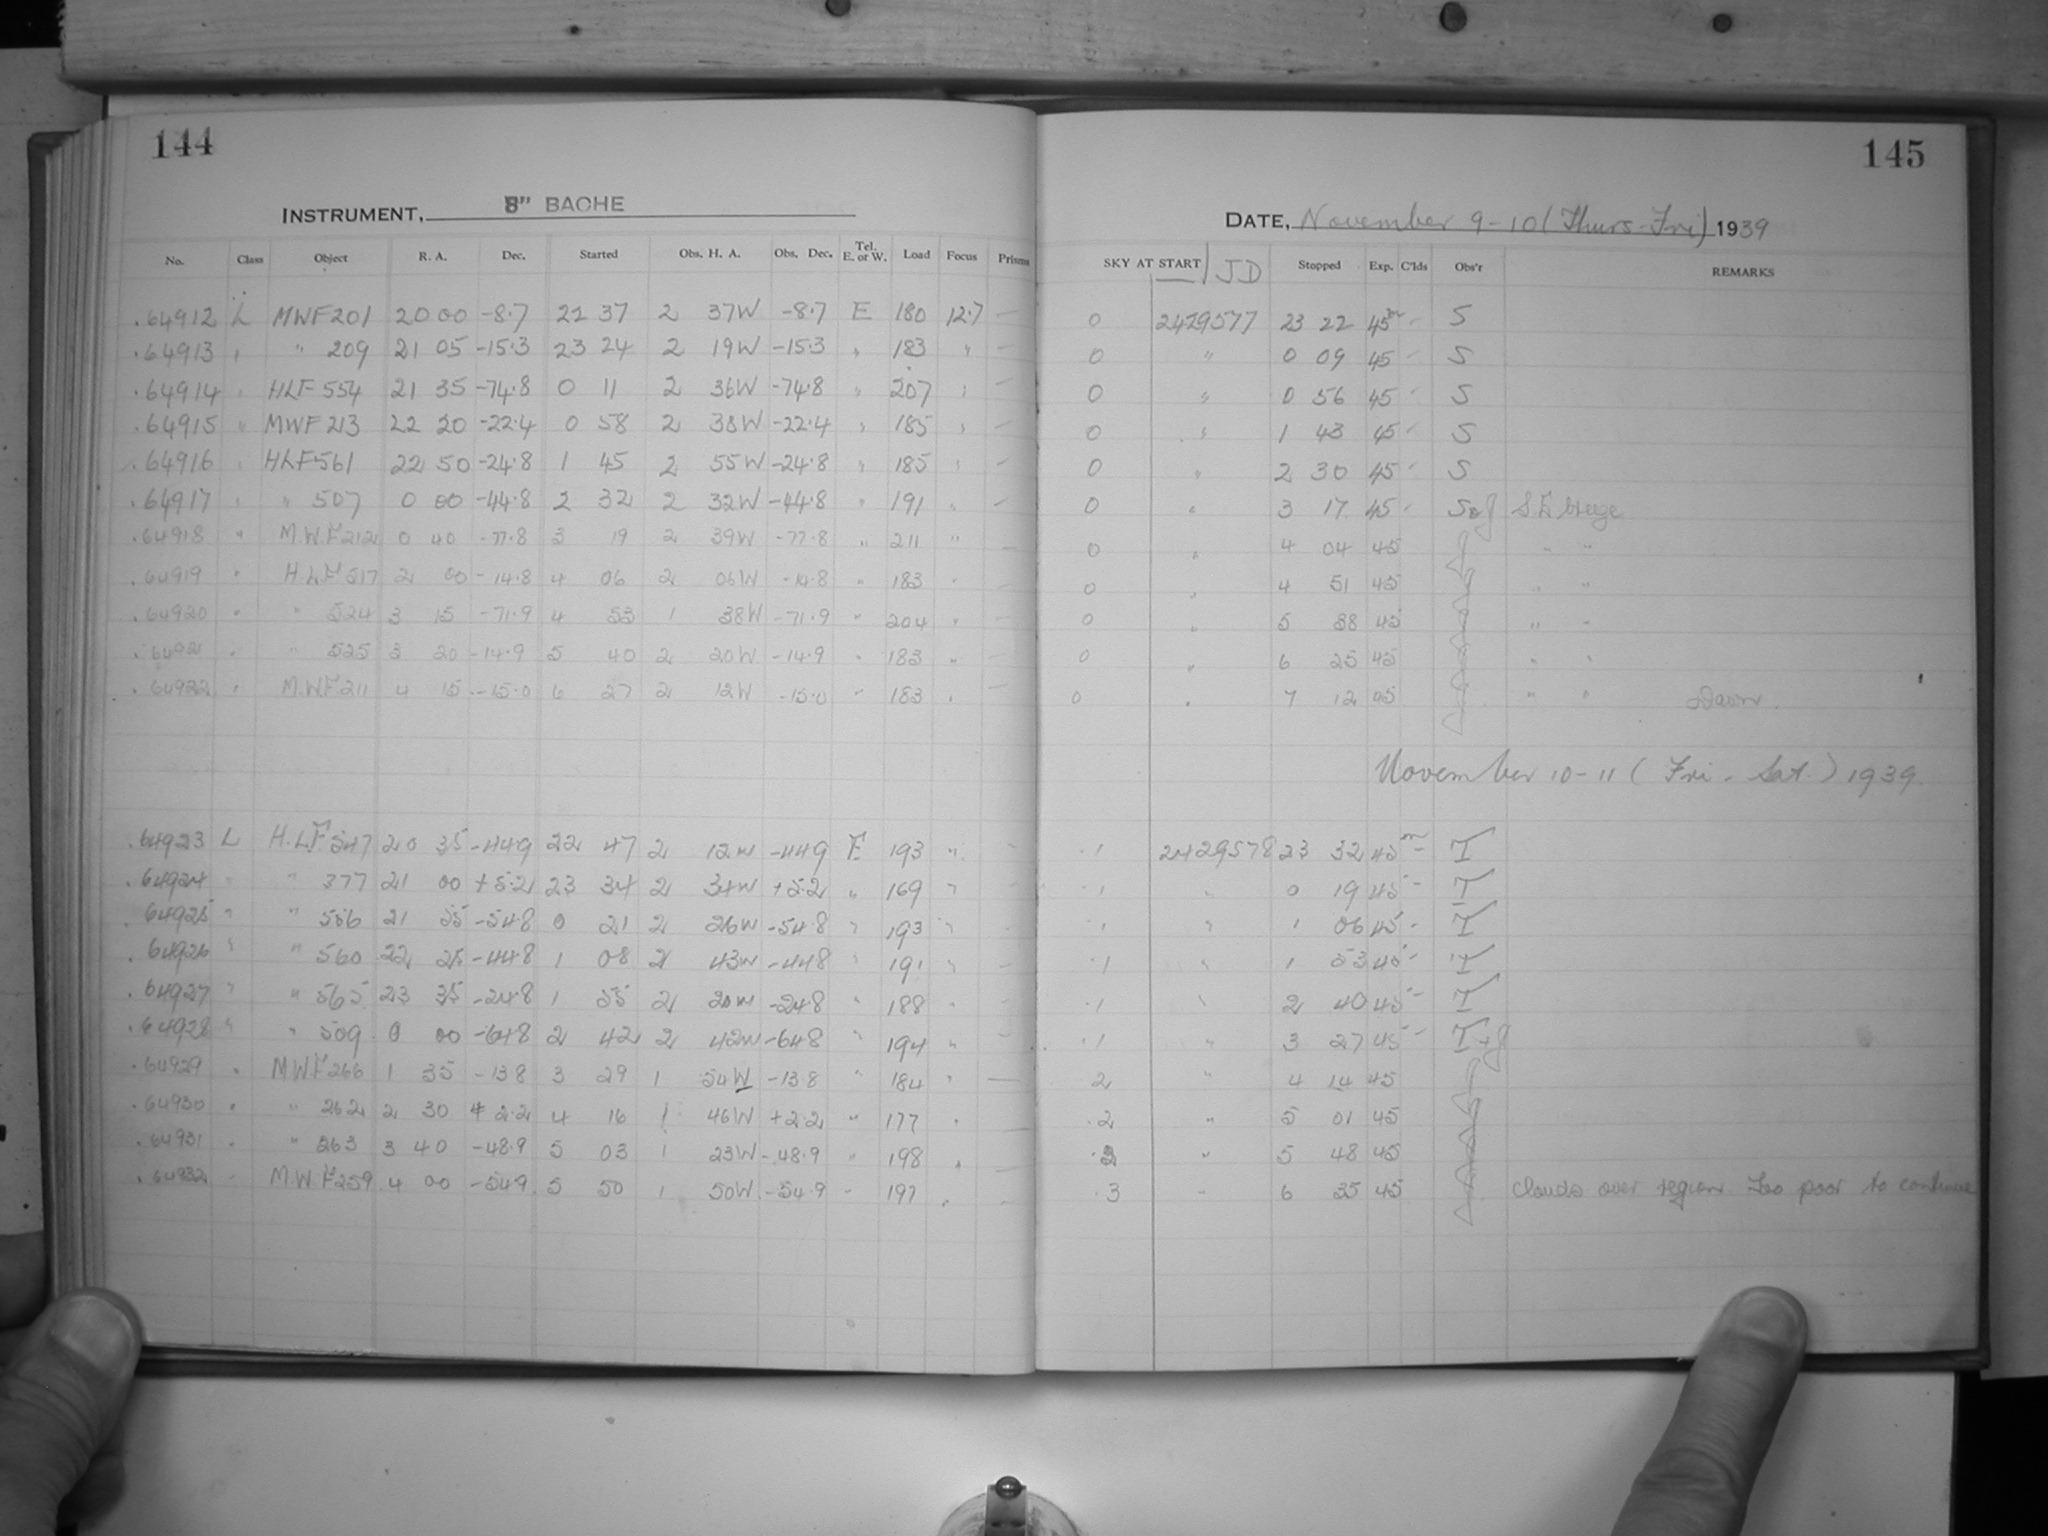 144
INSTRUMENT, 8" BACHE
No. Class Object R. A. Dec. Started Obs. H. A. Obs. Dec. Tel. E. or W. Load Focus Prisms
.64912 L MWF201 20 00 -8.7 22 37 2 37W -8.7 E 180 12.7 -
.64913 " " 209 21 05 -15.3 23 24 2 19W -15.3 " 183 " -
.64914 " HLF 554 21 35 -74.8 0 11 2 36W -74.8 " 207 " -
.64915 " MWF 213 22 20 -22.4 0 58 2 38W -22.4 " 185 " -
.64916 " HLF561 22 50 -24.8 1 45 2 55W -24.8 " 185 " -
.64917 " " 507 0 00 -44.8 2 32 2 32W -44.8 " 191 " -
.64918 " M.W.F212 0 40 -77.8 3 19 2 39W -77.8 " 211 " -
.64919 " H.L.F517 2 00 -14.8 4 06 2 06W -14.8 " 183 " -
.64920 " " 524 3 15 -71.9 4 53 1 38W -71.9 " 204 " -
.64921 " " 525 3 20 -14.9 5 40 2 20W -14.9 " 183 " -
.64922 " M.W.F211 4 15 -15.0 6 27 2 12W -15.0 " 183 " -
.64923 L H.L.F547 20 35 -44.9 22 47 2 12W -44.9 E 193 " -
.64924 " " 377 21 00 +5.2 23 34 2 34W +5.2 " 169 " -
.64925 " " 556 21 55 -54.8 0 21 2 26W -54.8 " 193 " -
.64926 " " 560 22 25 -44.8 1 08 2 43W -44.8 " 191 " -
.64927 " " 565 23 35 -24.8 1 55 2 20W -24.8 " 188 " -
.64928 " " 509 0 00 -64.8 2 42 2 42W -64.8 " 194 " -
.64929 " M.W.F266 1 35 -13.8 3 29 1 54W -13.8 " 184 " -
.64930 " " 262 2 30 +2.2 4 16 1 46W +2.2 " 177 " -
.64931 " " 263 3 40 -48.9 5 03 1 23W -48.9 " 198 " -
.64932 " M.W.F259 4 00 -54.9 5 50 1 50W -54.9 " 197 " -
145
DATE, November 9-10 (Thurs-Fri) 1939
SKY AT START JD Stopped Exp. C'lds Obs'r REMARKS
0 2429577 23 22 45m - S
0 " 0 09 45 - S
0 " 0 56 45 - S
0 " 1 43 45 - S
0 " 2 30 45 - S
0 " 3 17 45 - S&J S.E. breeze
0 " 4 04 45 " "
0 " 4 51 45 " "
0 " 5 38 45 " "
0 " 6 25 45 " "
0 " 7 12 45 " " Dawn.
November 10-11 (Fri - Sat.) 1939.
.1 2429578 23 32 45m - T
.1 " 0 19 45 - T
.1 " 1 06 45 - T
.1 " 1 53 45 - T
.1 " 2 40 45 - T
.1 " 3 27 45 - T+J
2 " 4 14 45
.2 " 5 01 45
.2 " 5 48 45
.3 " 6 35 45 Clouds over region. Too poor to continue